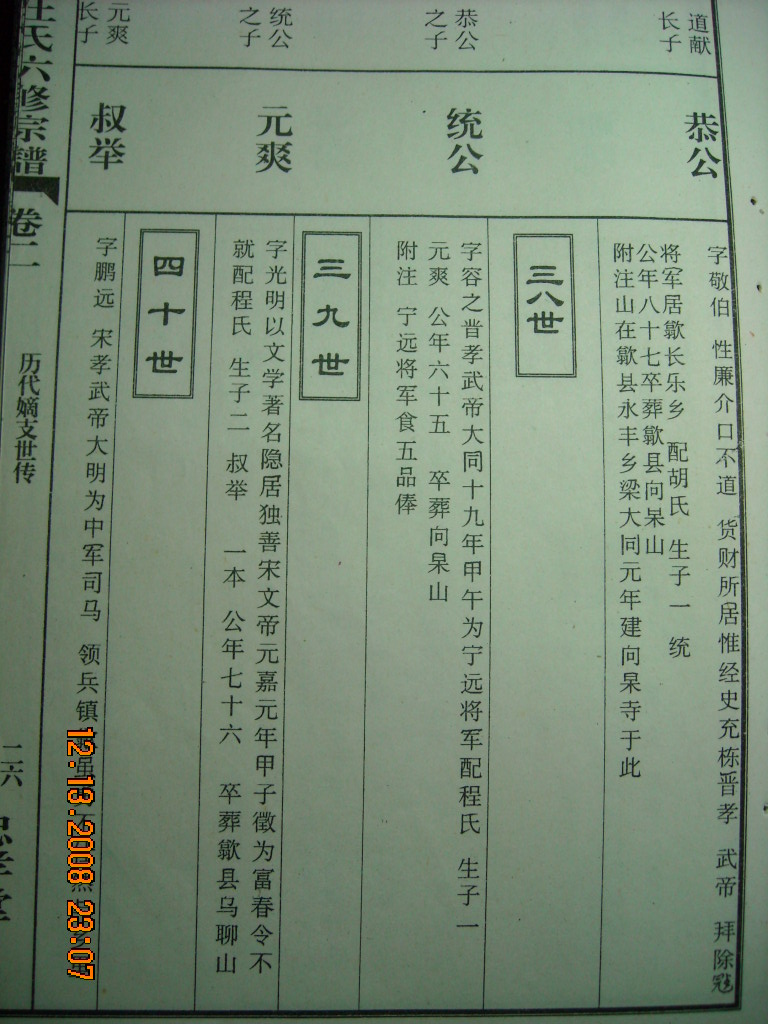 道献
长子
恭公
字敬伯 性廉介口不道 货财所居惟经史充栋晋孝 武帝 拜除冠
将军居歙长乐乡 配胡氏 生子一 统
公年八十七卒葬歙县向杲山
附注山在歙县永丰乡梁大同元年建向杲寺于此
三八世
恭公
之子
统公
字容之晋孝武帝大同十九年甲午为宁远将军配程氏 生子一
元爽 公年六十五 卒葬向杲山
附注 宁远将军食五品俸
三九世
统公
之子
元爽
字光明以文学著名隐居独善宋文帝元嘉元年甲子徵为富春令不
就配程氏 生子二 叔举 一本 公年七十六 卒葬歙县乌聊山
四十世
元爽
长子
叔举
字鹏远 宋孝武帝大明为中军司马 领兵镇
氏六修宗谱
卷二
历代嫡支世传
二六
12.13.2008 23:07